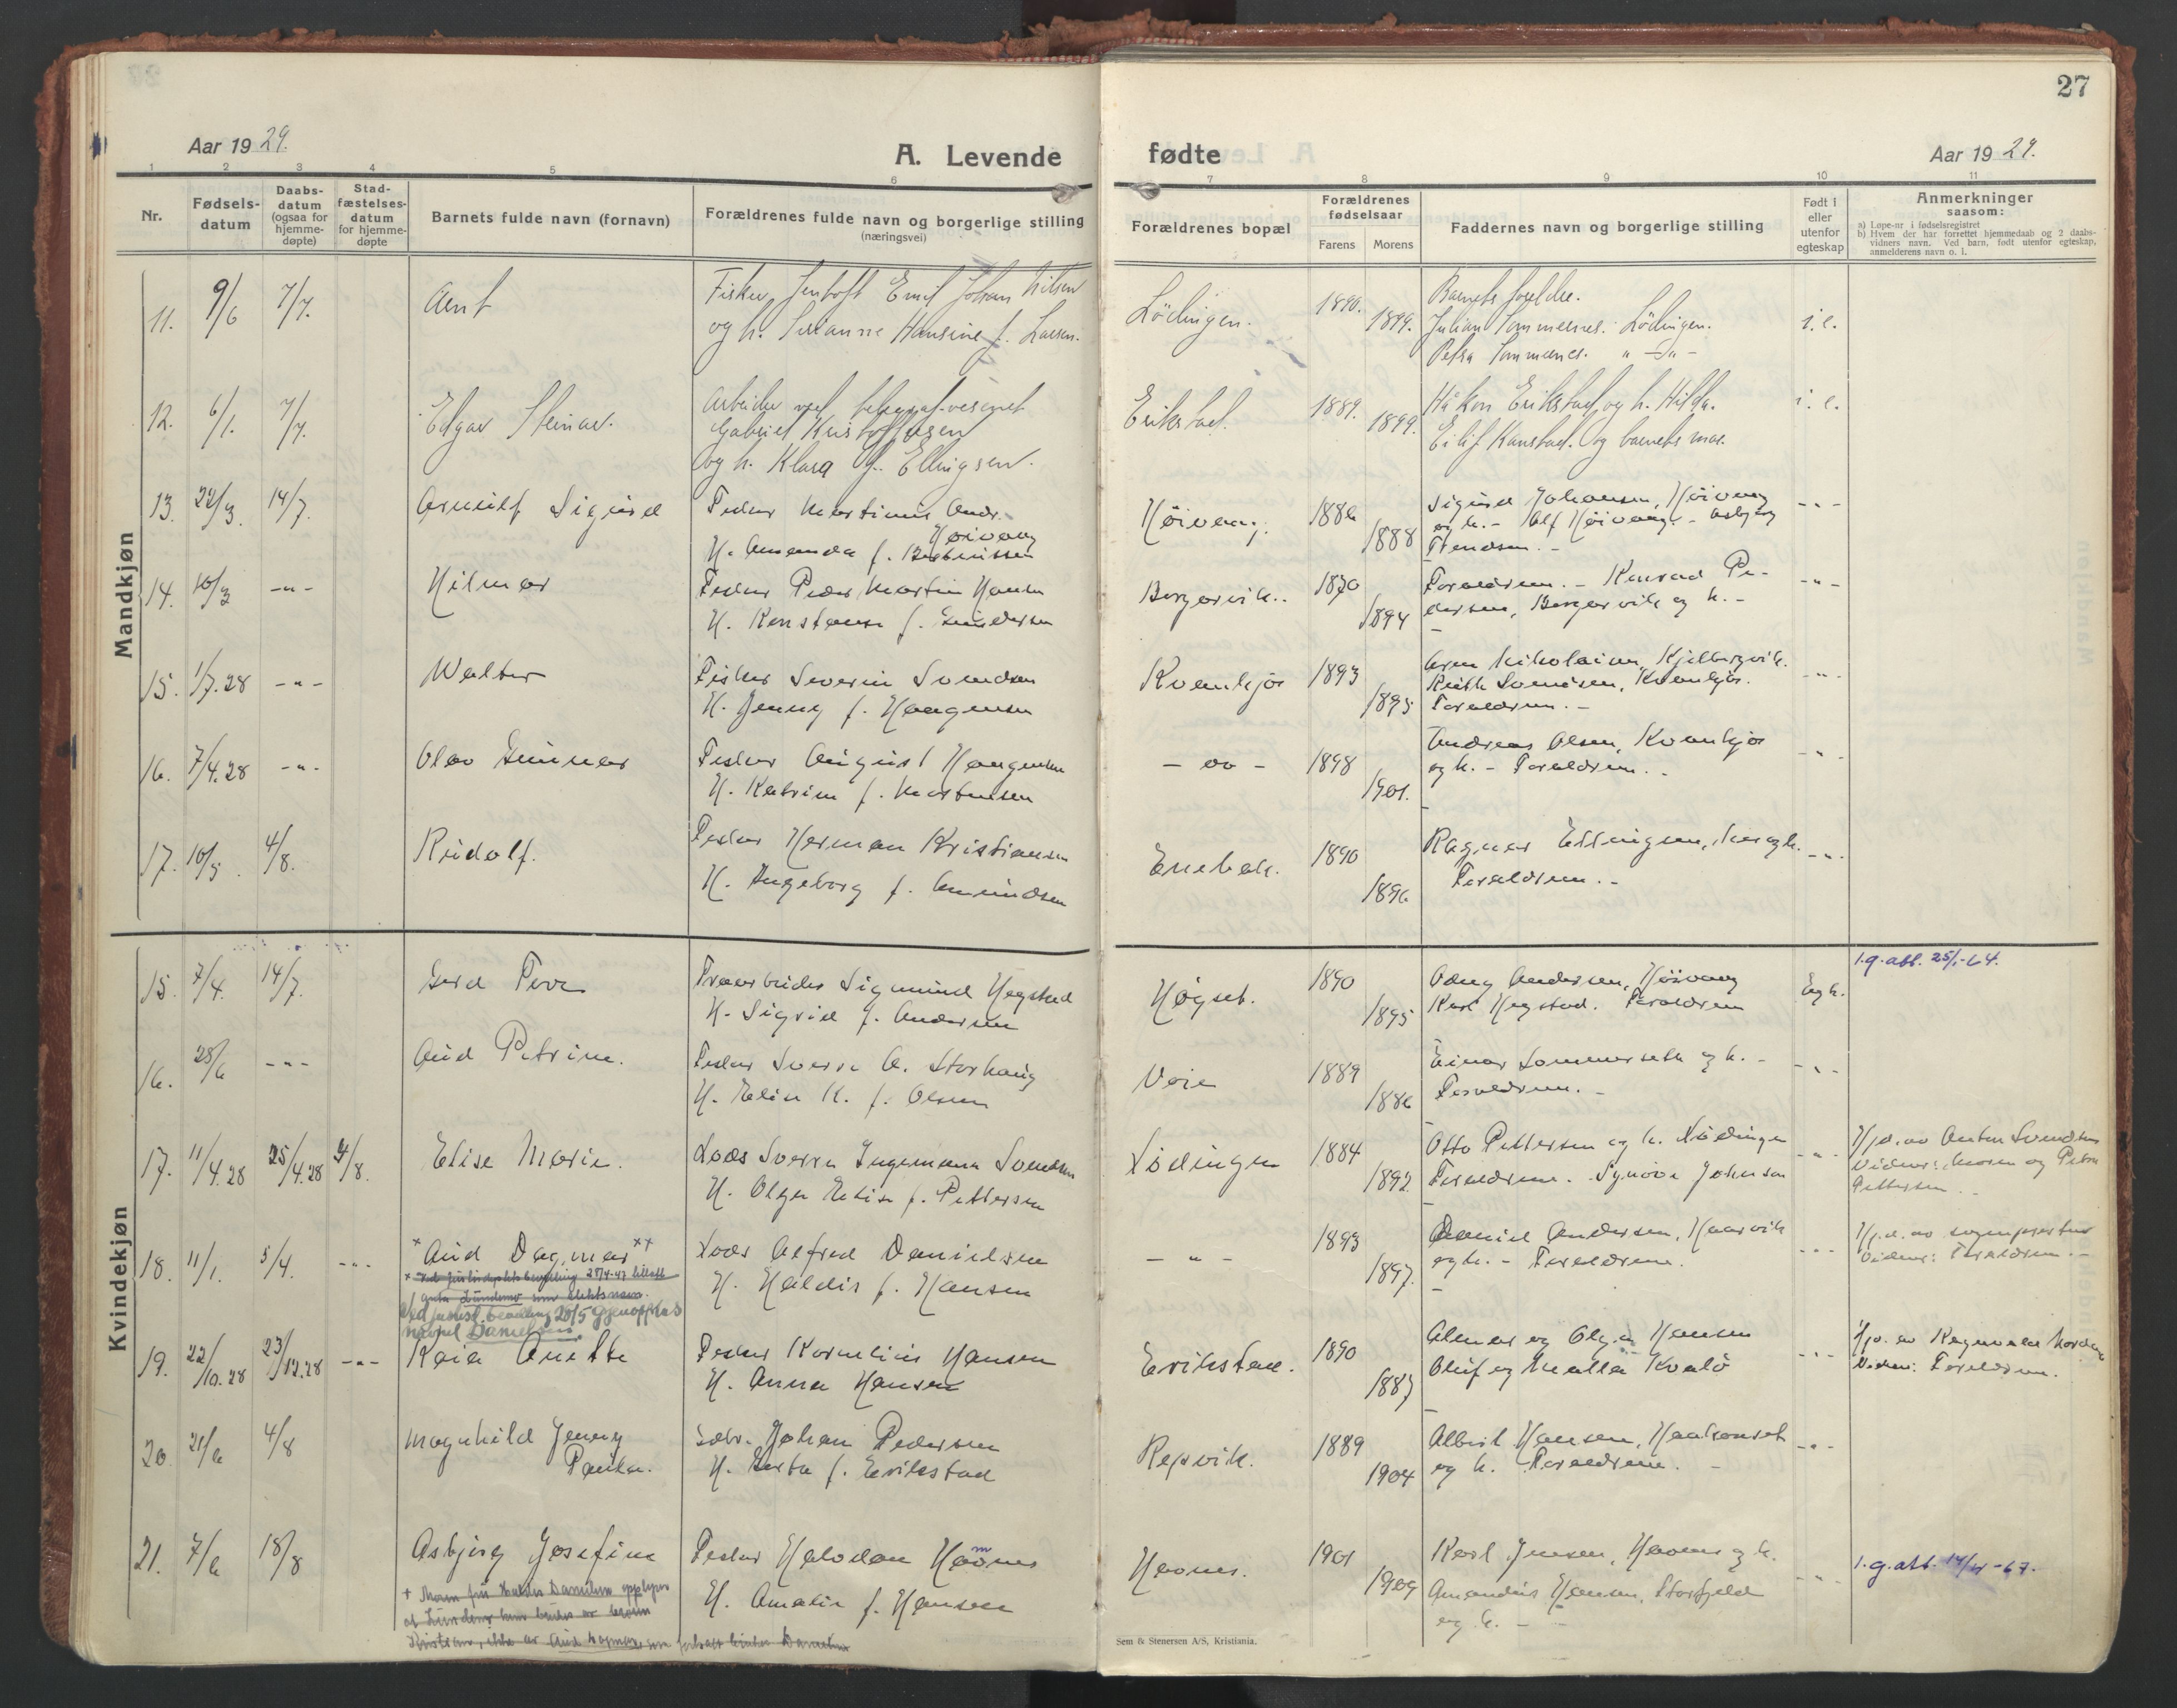 27
Aar 1929.
A. Levende
fødte
Aar 1929.
1 2 3 4 5 6 7 8 9 10 11
Nr.
Fødsels-
datum
Daabs-
datum
(ogsaa for
hjemme-
døpte)
Stad-
fæstelses-
datum
for hjemme-
døpte
Barnets fulde navn (fornavn)
Forældrenes fulde navn og borgerlige stilling
(næringsvei)
Forældrenes bopæl
Forældrenes
fødselsaar
Farens Morens
Faddernes navn og borgerlige stilling
Født i
eller
utenfor
egteskap
Anmerkninger
saasom:
a) Løpe-nr i fødselsregistret
b) Hvem der har forrettet hjemmedaab og 2 daabs-
vidners navn. Ved barn, født utenfor egteskap,
anmelderens navn o. l.
Mandkjøn
11. 9/6 7/7. Arnt
Fisker Jentoft Emil Johan Nilsen
og h. Susanne Hansine f. Larsen.
Lödingen. 1890. 1899.
Barnets foreldre.
Julian Sommernes. Lödingen.
Petra Sommernes. " - " -
i. e.
12. 6/1. 7/7. Edgar Steinar.
Arbeider ved telegraf-vesenet
Gabriel Kristoffersen
og h. Klara f. Ellingsen.
Erikstad. 1889. 1899.
Håkon Erikstad og h. Hilda.
Eilif Kanstad. Og barnets mor.
i. e.
13. 22/3. 14/7. Arnulf Sigurd
Fisker Martinus Andr.
Høivang
H. Amanda f.
Høivang. 1886 1888
Sigurd Johansen, Høivang
og h. - Alf Høivang. - Asbjørg
- " -
14. 10/3 - " - Hilmar
Fisker Peder Martin Hansen
H. Konstanse f. Gundersen
Bergsvik.. 1870 1894
Foreldrene. - Konrad Pe-
dersen, Bergsvik og h. -
- " -
15. 1/7.28 - " - Walter
Fisker Severin Svendsen
H. Jenny f. Haagensen
Kvankjos 1893 1895
Nikolaisen, Kjelbergvik.
Ruth Svendsen, Kvankjos.
Foreldrene. -
- " -
16. 7/4.28 - " - Olav Gunnar
Fisker August Haagensen
H. Katrine f. Mortensen
- " - 1898 1901.
Andreas Olsen, Kvankjos
og h. - Foreldrene. -
- " -
17. 10/5. 4/8. Rudolf.
Fisker Herman Kristiansen
H. Ingeborg f. Amundsen
Enebak. 1890 1896
Ragnar Ellingsen, og h.
Foreldrene. -
- " -
Kvindekjøn
15. 7/4. 14/7. Gerd Tove
Sigmund Hegstad
H. Sigrid f. Andersen
Høgset. 1890 1895
Odny Andersen, Høivang
Karl Hegstad. Foreldrene
1.g.att. 25/1-64.
16. 28/6 - " - Aud Petrine.
Fisker Sverre A. Storhaug
H. Elise K. f. Olsen
Voie 1889 1886
Einar Sommerseth og h. -
Foreldrene. -
- " -
17. 11/4.28 25/4.28 4/8. Elise Marie.
Lods Sverre Ingemann Svendsen
H. Olga Elise f. Pettersen
Lödingen 1884 1892
Otto Pettersen og h. Lödingen
Foreldrene. Synöve Johnsen
- " -
Hjd. av Anton Svendsen
Vidner: Moren og Petra
Pettersen.
18. 11/1. 5/4. - " - × Aud Dagmar ××
Lods Alfred Danielsen
H. Haldis f. Hansen
- " - 1893 1897.
Daniel Andersen, Kaarvik
og h. - Foreldrene.
- " -
Hj.d. av sognepresten
Vidner: Foreldrene. -
som slektsnavn.
Ved justisd. bevilling 20/5 gjenopptas
navnet Danielsen.
19. 22/10.28 23/12.28 - " - Kaia Anette
Fisker Kornelius Hansen
H. Anna Hansen
Erikstad. 1890 1887
Almar og Olga Hansen
Oluf og Malla Kvalö
- " -
Hjd. av Ragnvald
Vidner: Foreldrene.
20. 21/6 4/8 Magnhild Jenny
Paula.
Johan Pedersen
H. Herta f. Erikstad
Repvik. 1889 1904
Albert Hansen,
og h. Foreldrene. -
- " -
21. 7/6 18/8 Asbjørg Josefine
Fisker Halvdan Havnes
H. Amalie f. Hansen
Havnes. 1901 1909
Karl Jensen, Havnes og h.
Amandus Hansen, Storfjeld
og h. -
- " -
1.g.att. 14/4-67.
+ Moren fru Haldis Danielsen opplyser
Sem & Stenersen A/S, Kristiania.